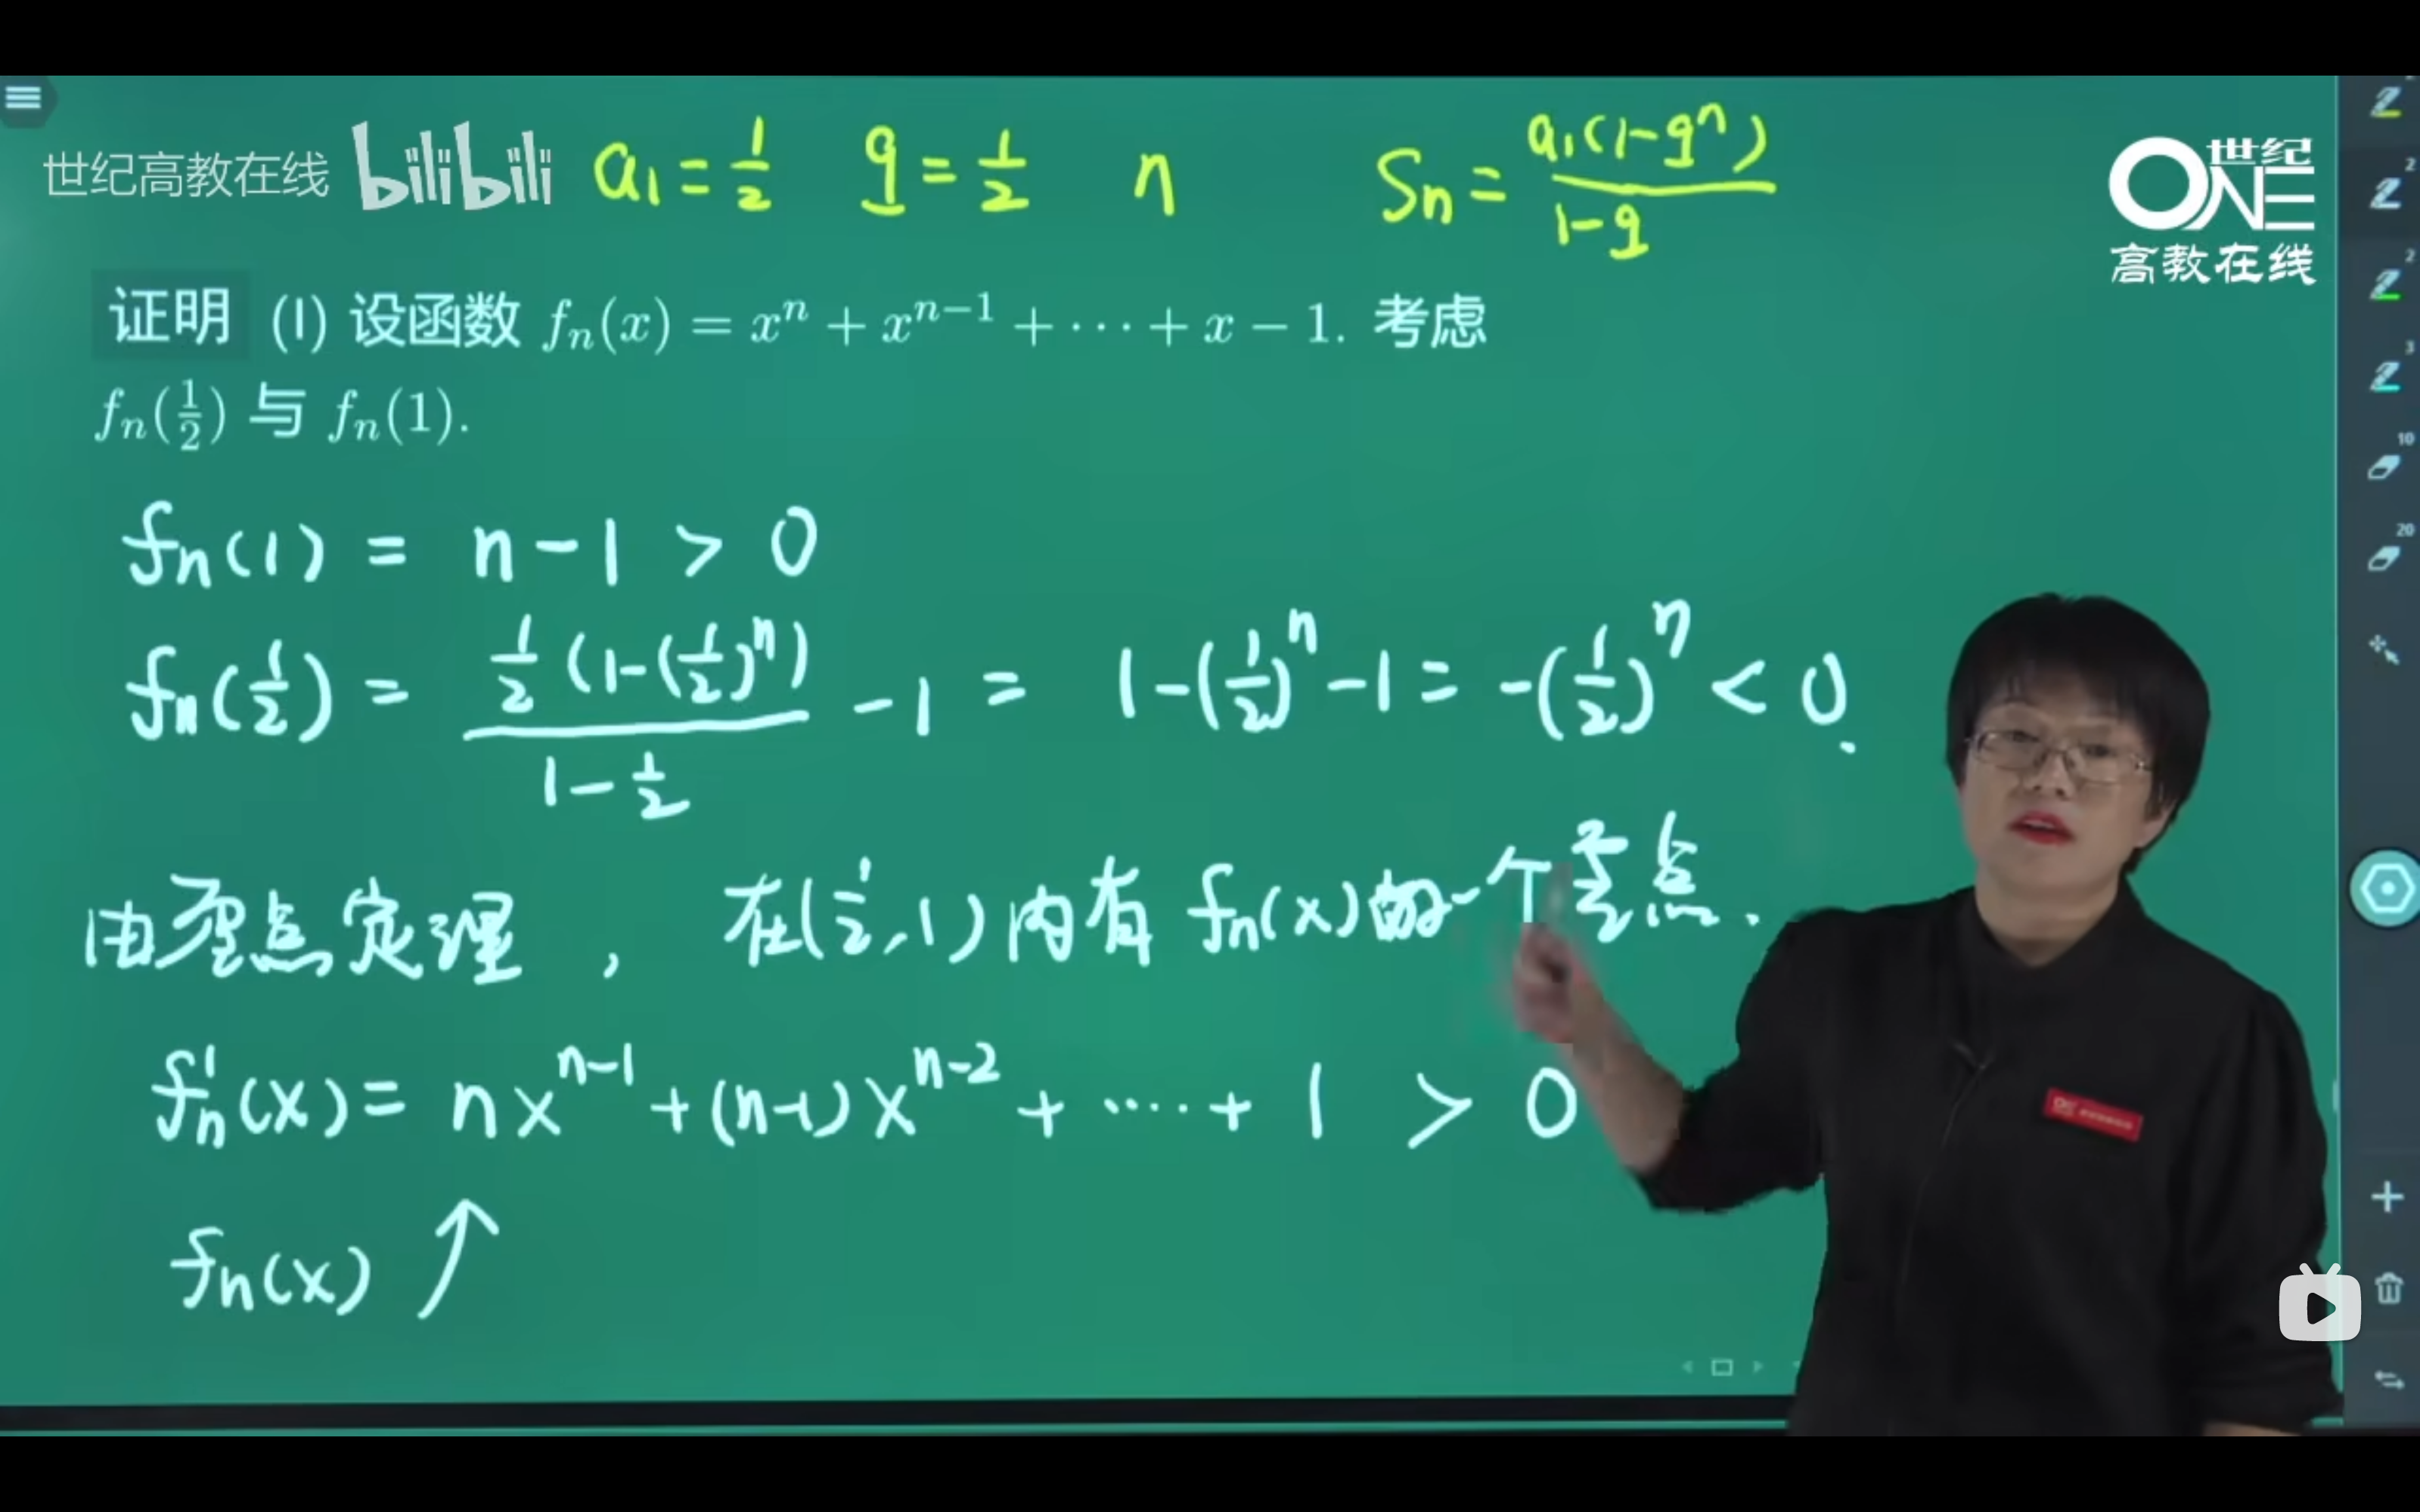 世纪高教在线 bilibili a₁ = 1/2 q = 1/2 n Sn = a₁(1-qⁿ)/(1-q)
ONE 世纪
高教在线
证明 (I) 设函数 fₙ(x) = xⁿ + xⁿ⁻¹ + ⋯ + x − 1. 考虑
fₙ(1/2) 与 fₙ(1).
fn(1) = n-1 > 0
fn(1/2) = 1/2(1-(1/2)ⁿ)/(1-1/2) -1 = 1-(1/2)ⁿ-1 = -(1/2)ⁿ < 0.
由零点定理, 在(1/2,1)内有 fn(x)的一个零点.
fn'(x) = nxⁿ⁻¹+(n-1)xⁿ⁻²+····+ 1 > 0
fn(x) ↑
2
2
3
10
20